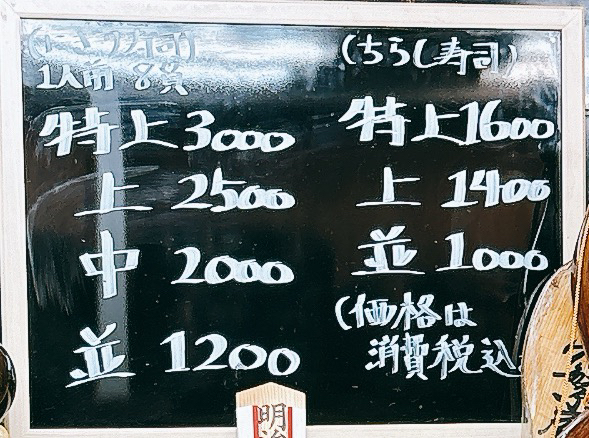 (にぎり寿司)
1人前 8貫
特上 3000
上 2500
中 2000
並 1200
(ちらし寿司)
特上 1600
上 1400
並 1000
(価格は
消費税込
明治